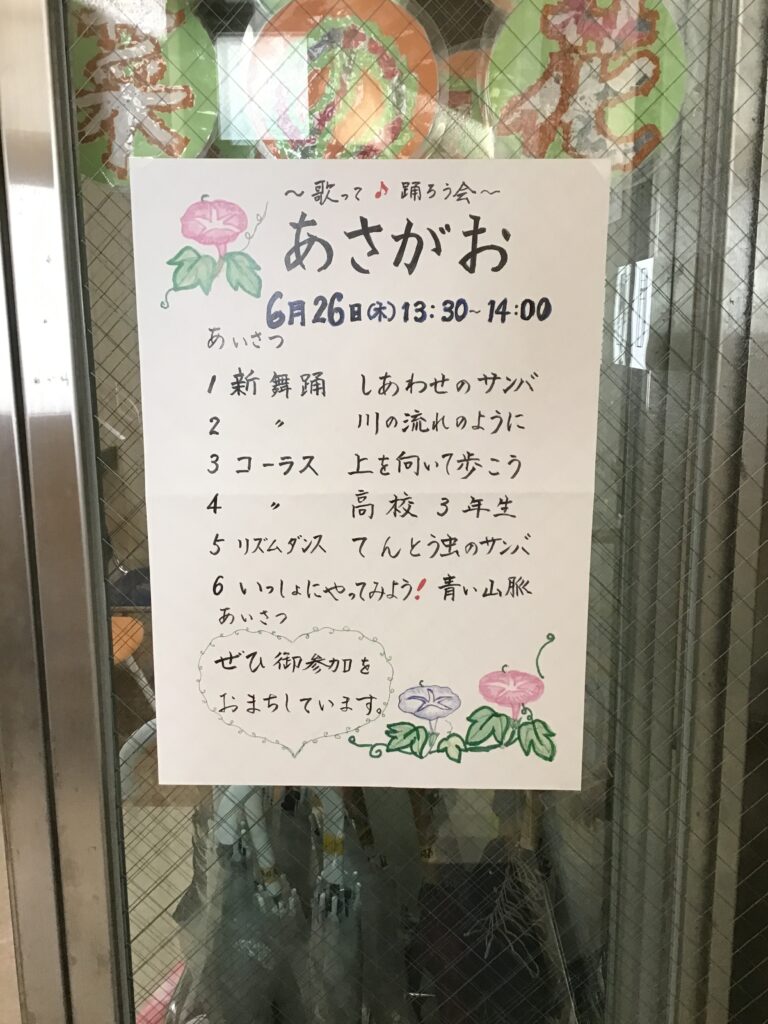 菜の花
〜歌って♪踊ろう会〜
あさがお
6月26日(木)13:30~14:00
あいさつ
1 新舞踊 しあわせのサンバ
2 〃 川の流れのように
3 コーラス 上を向いて歩こう
4 〃 高校3年生
5 リズムダンス てんとう虫のサンバ
6 いっしょにやってみよう! 青い山脈
あいさつ
ぜひ御参加を
おまちしています。